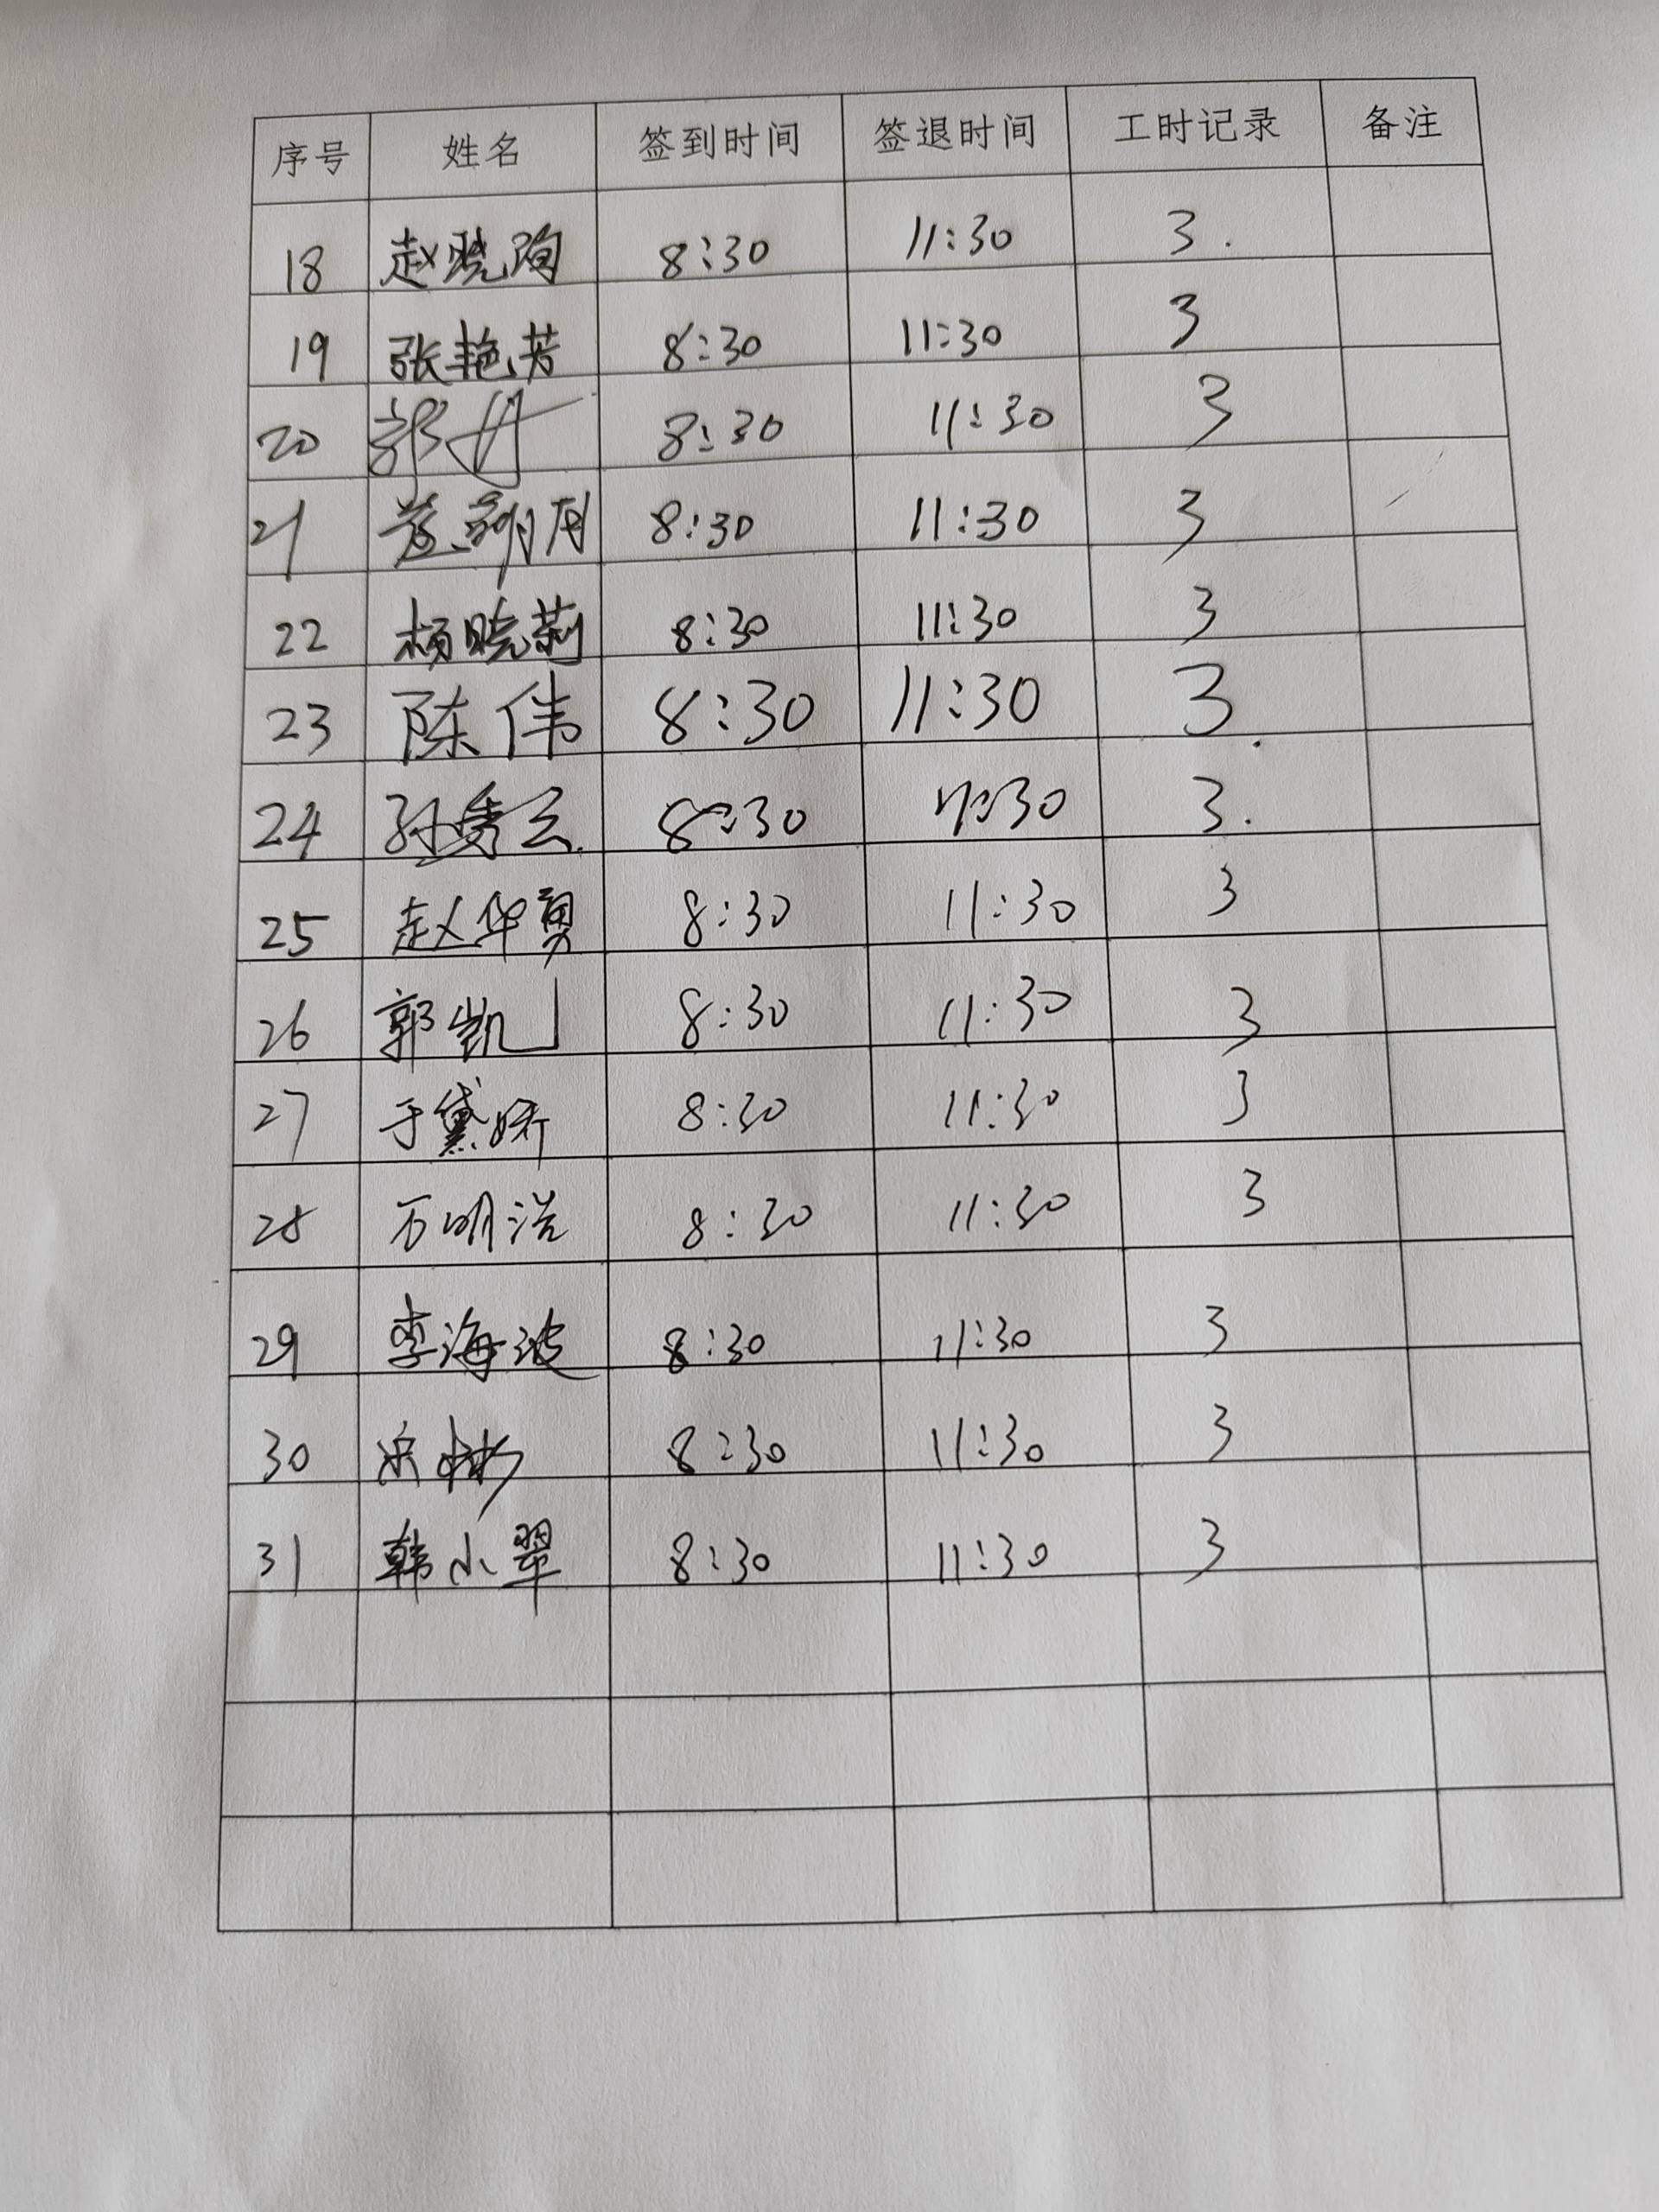 序号 姓名 签到时间 签退时间 工时记录 备注
18 赵晓 8:30 11:30 3.
19 张艳芳 8:30 11:30 3
20 郭丹 8:30 11:30 3
21 8:30 11:30 3
22 杨晓莉 8:30 11:30 3
23 陈伟 8:30 11:30 3.
24 孙秀云 8:30 11:30 3.
25 赵华勇 8:30 11:30 3
26 郭凯 8:30 11:30 3
27 于黛娇 8:30 11:30 3
28 万明浩 8:30 11:30 3
29 李海波 8:30 11:30 3
30 8:30 11:30 3
31 韩小翠 8:30 11:30 3